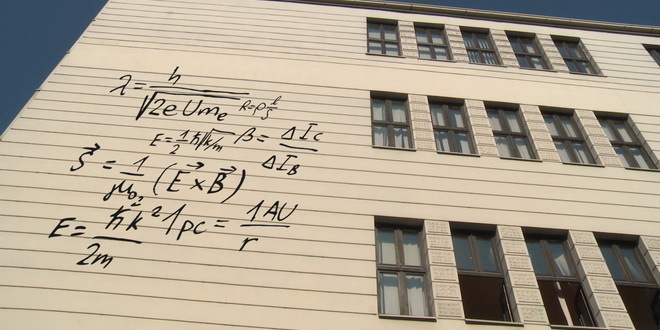 λ = h / √2eUme
R = ρ l/S
E = 1/2 ħ√k/m
β = ΔIC / ΔIB
S⃗ = 1/μ0 (E⃗ × B⃗)
E = ħk² / 2m
1pc = 1AU / r